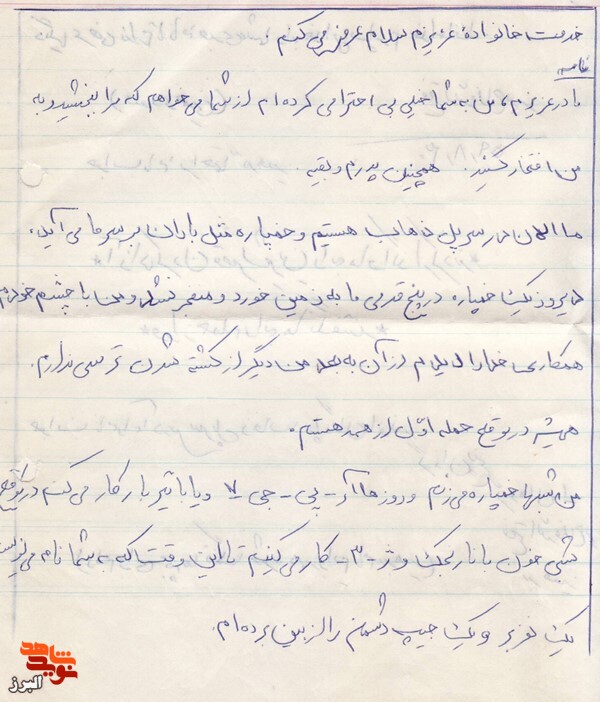 خدمت خانواده عزیزم سلام عرض می کنم.
خاصه
مادر عزیزم، من به شما خیلی بی احترامی کرده ام از شما می خواهم که مرا ببخشید و به
من افتخار کنید. همچنین پدرم و بقیه.
ما الان در سرپل ذهاب هستیم و خمپاره مثل باران بر سر ما می آید.
دیروز یک خمپاره در پنج قدمی ما به زمین خورد و منفجر نشد و من با چشم خودم
همکاری خدا را دیدم از آن به بعد من دیگر از کشته شدن ترسی ندارم.
همیشه در موقع حمله اول از همه هستم.
من شبها خمپاره می زنم و روزها آر-پی-جی-۷ و یا با تیربار کار می کنم در موقع
کشی چون با نارنجک و ژ-۳- کار می کنیم تا این وقت که به شما نامه می نویسم
یک نفربر و یک جیپ دشمن را از بین برده ام.
نوید شاهد
البرز